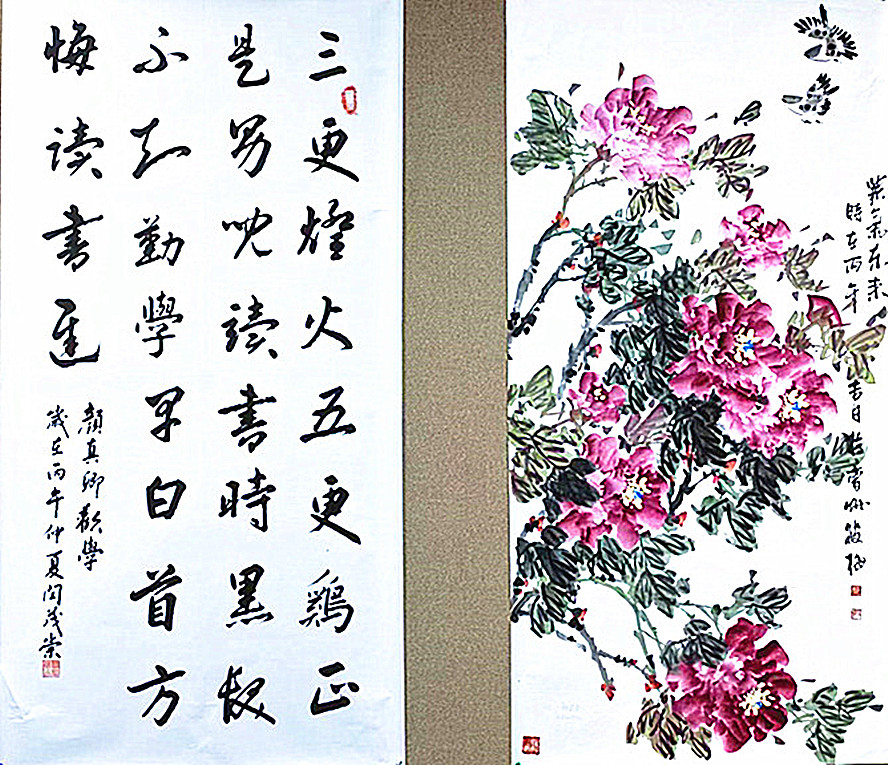 三更燈火五更鷄正
是男兒讀書時黑髮
不知勤學早白首方
悔读書遲
顔真卿勸學
歲在丙午仲夏闫茂崇
紫氣东来
時在丙午